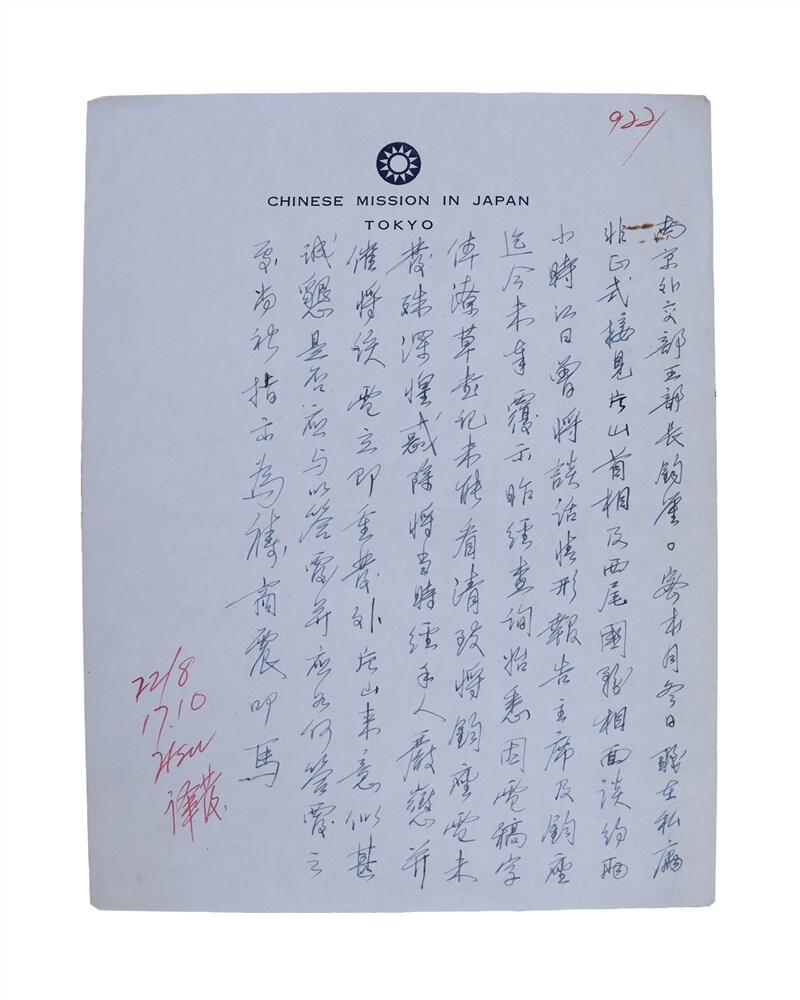 9221
CHINESE MISSION IN JAPAN
TOKYO
南京外交部王部長鈞鑒。密本月冬日職在私寓
非正式接見片山首相及西尾國務相面談約兩
小時江日曾將談話情形報告主席及鈞座
迄今未奉覆示昨經查詢始悉因電稿字
体潦草登記未能看清致將鈞座電未
發殊深惶惑除將當時經手人嚴懲并
催將該電立即重發外片山來意似甚
誠懇是否應予以答覆并應如何答覆之
處尚祈指示為禱商震叩馬
22/8
17.10
Hsu
譯發